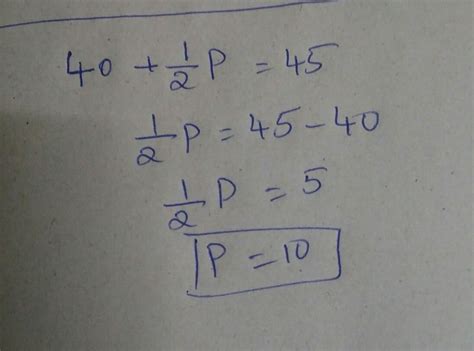 40 + 1/2 P = 45
1/2 P = 45 - 40
1/2 P = 5
P = 10